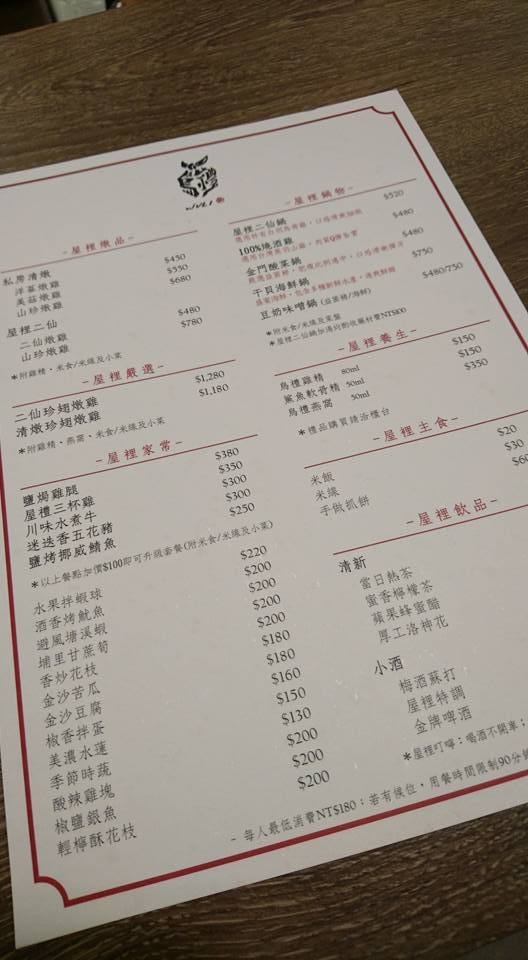 WULI
-屋裡燉品-
私房清燉
洋蔘燉雞 $450
美菇燉雞 $550
山珍燉雞 $680
屋裡二仙
二仙燉雞 $480
山珍燉雞 $780
*附雞精、米食/米線及小菜
-屋裡嚴選-
二仙珍翅燉雞 $1,280
清燉珍翅燉雞 $1,180
*附雞精、燕窩、米食/米線及小菜
-屋裡家常-
鹽焗雞腿 $380
屋禮三杯雞 $350
川味水煮牛 $300
迷迭香五花豬 $300
鹽烤挪威鯖魚 $250
*以上餐點加價$100即可升級套餐(附米食/米線及小菜)
水果拌蝦球 $220
酒香烤魷魚 $200
避風塘溪蝦 $200
埔里甘蔗筍 $200
香炒花枝 $200
金沙苦瓜 $180
金沙豆腐 $180
椒香拌蛋 $160
美濃水蓮 $150
季節時蔬 $130
酸辣雞塊 $200
椒鹽銀魚 $200
輕檸酥花枝 $200
-屋裡鍋物-
屋裡二仙鍋 $520
100%燒酒雞 $480
金門酸菜鍋 $480
干貝海鮮鍋 $750
豆奶味噌鍋(益菌豬/海鮮) $480/750
*附米食/米線及菜盤
*屋裡二仙鍋加湯均酌收藥材費NT$100
-屋裡養生-
鳥禮雞精 80ml $150
鯊魚軟骨精 50ml $150
鳥禮燕窩 50ml $350
*禮品購買請洽櫃台
-屋裡主食-
米飯 $20
米線 $30
手做抓餅 $60
-屋裡飲品-
清新
當日熱茶
蜜香檸檬茶
蘋果蜂蜜醋
厚工洛神花
小酒
梅酒蘇打
屋裡特調
金牌啤酒
*屋裡叮嚀：喝酒不開車；
- 每人最低消費NT$180；若有候位，用餐時間限制90分鐘